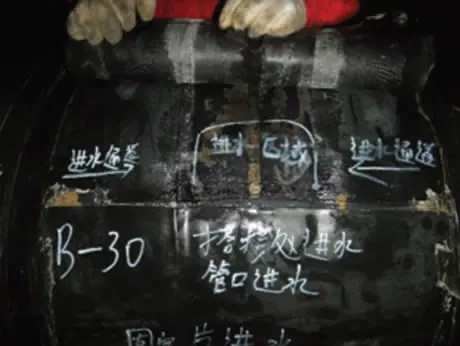 进水通道 进水区域 进水通道
B-30 搭接处进水
管口进水
固定片进水